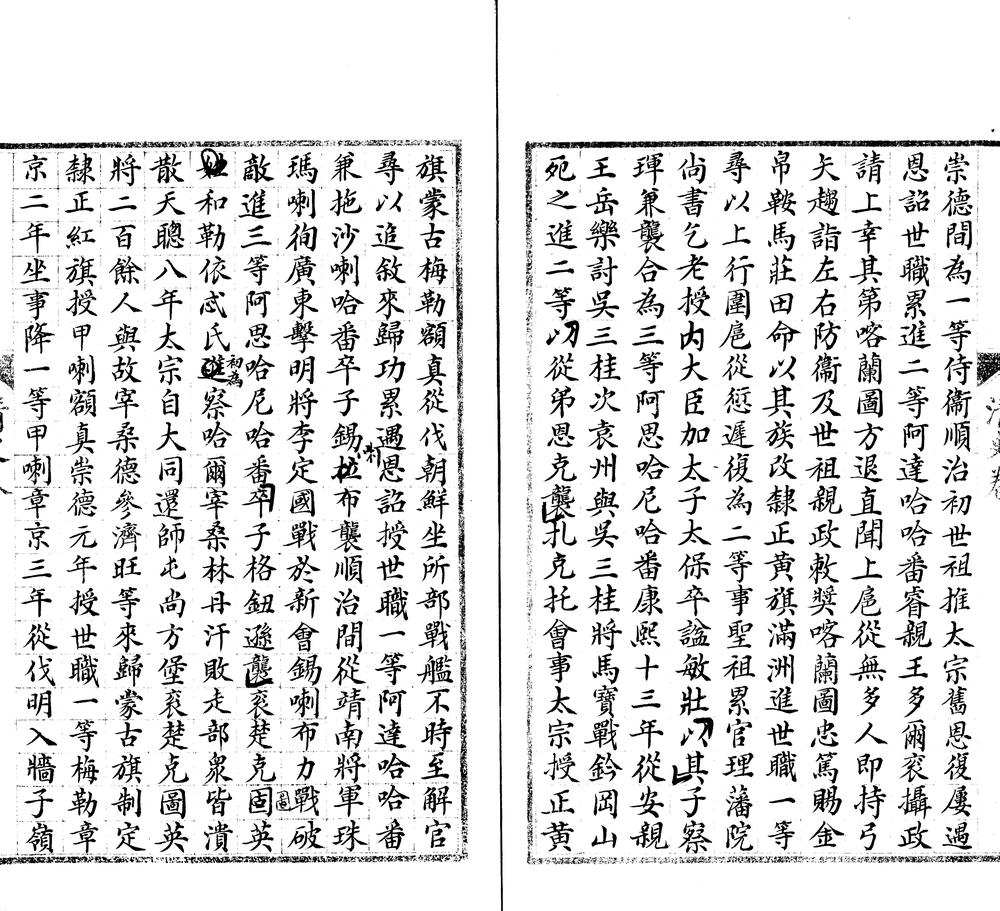 崇德間為一等侍衞順治初世祖推太宗舊恩復屢遇
恩詔世職累進二等阿達哈哈番睿親王多爾袞攝政
請上幸其第喀蘭圖方退直聞上扈從無多人即持弓
矢趨詣左右防衞及世祖親政敕獎喀蘭圖忠篤賜金
帛鞍馬莊田命以其族改隸正黃旗滿洲進世職一等
尋以上行圍扈從愆遲復為二等事聖祖累官理藩院
尚書乞老授内大臣加太子太保卒諡敏壯以其子察
琿兼襲合為三等阿思哈尼哈番康熙十三年從安親
王岳樂討吳三桂次袁州與吳三桂將馬寶戰鈐岡山
死之進二等以從弟恩克襲扎克托會事太宗授正黃
旗蒙古梅勒額真從伐朝鮮坐所部戰艦不時至解官
尋以追敘來歸功累遇恩詔授世職一等阿達哈哈番
兼拖沙喇哈番卒子錫喇布襲順治間從靖南將軍珠
瑪喇徇廣東擊明將李定國戰於新會錫喇布力戰破
敵進三等阿思哈尼哈番卒子格鈕遜襲袞楚克圖英
和勒依忒氏初為察哈爾宰桑林丹汗敗走部眾皆潰
散天聰八年太宗自大同還師屯尚方堡袞楚克圖英
將二百餘人與故宰桑德參濟旺等來歸蒙古旗制定
隸正紅旗授甲喇額真崇德元年授世職一等梅勒章
京二年坐事降一等甲喇章京三年從伐明入牆子嶺